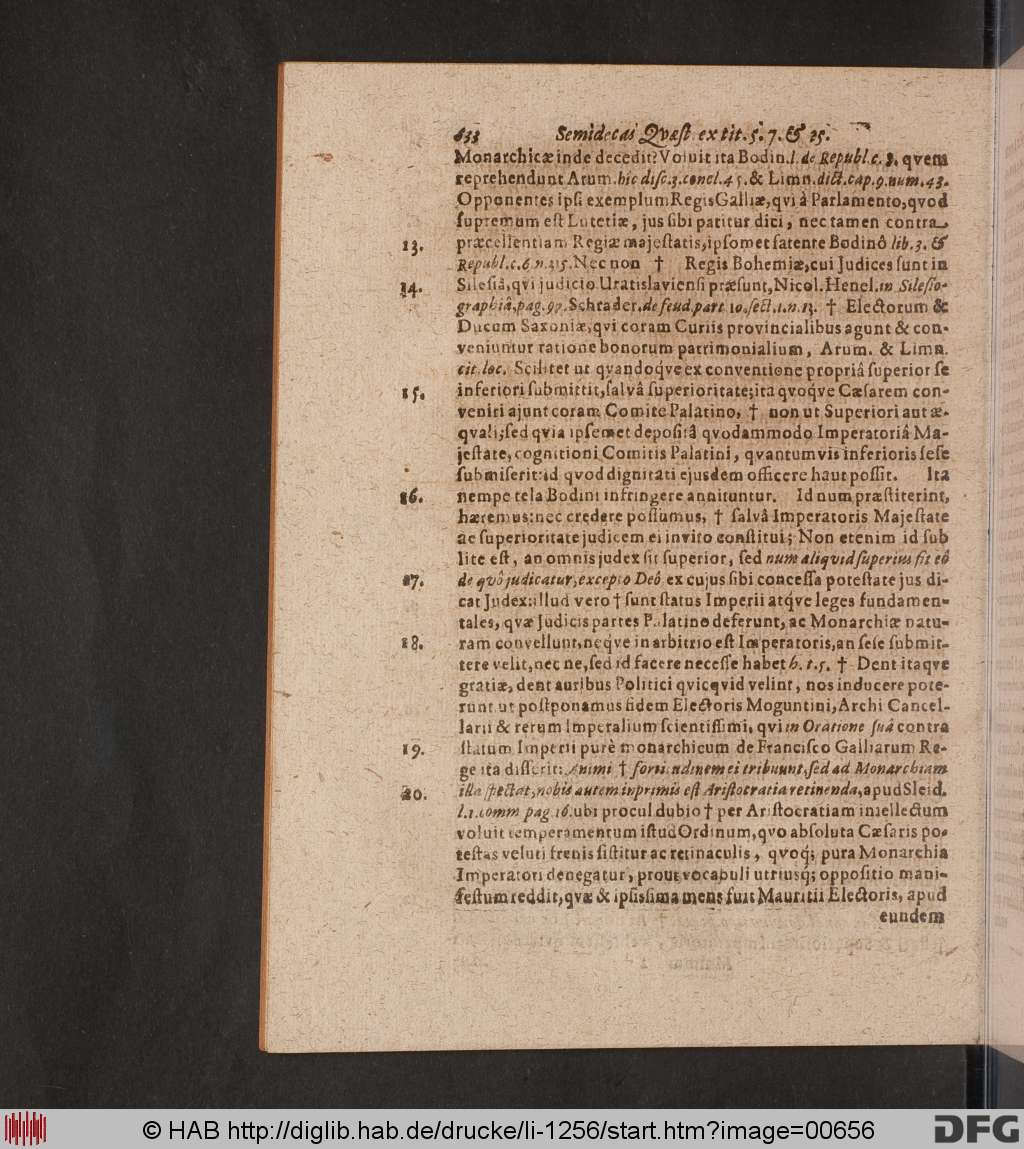 633 Semidecas Qvæst. ex tit. 5. 7. & 25.
Monarchicæ inde decedit? Voluit ita Bodin. l. de Republ. c. 8. qvem
reprehendunt Arum. hic disc. 3. concl. 45. & Limn. dict. cap. 9. num. 43.
Opponentes ipsi exemplum Regis Galliæ, qvi â Parlamento, qvod
supremum est Lutetiæ, jus sibi patitur dici, nec tamen contra
13. præcellentiam Regiæ majestatis, ipsomet fatente Bodinô lib. 3. &
Republ. c. 6. n. 315. Nec non † Regis Bohemiæ, cui Judices sunt in
14. Silesiâ, qvi judicio Uratislaviensi præsunt, Nicol. Henel. in Silesio-
graphiâ, pag. 97. Schrader. de feud. part. 10. sect. 1. n. 13. † Electorum &
Ducum Saxoniæ, qvi coram Curiis provincialibus agunt & con-
veniuntur ratione bonorum patrimonialium, Arum. & Limn.
cit. loc. Scilicet ut qvandoqve ex conventione propriâ superior se
15. inferiori submittit, salvâ superioritate; ita qvoqve Cæsarem con-
veniri ajunt coram Comite Palatino, † non ut Superiori aut æ-
qvali; sed qvia ipsemet depositâ qvodammodo Imperatoriâ Ma-
jestate, cognitioni Comitis Palatini, qvantumvis inferioris sese
submiserit: id qvod dignitati ejusdem officere haut possit. Ita
16. nempe tela Bodini infringere annituntur. Id num præstiterint,
hæremus: nec credere possumus, † salvâ Imperatoris Majestate
ac superioritate judicem ei invito constitui; Non etenim id sub
lite est, an omnis judex sit superior, sed num aliqvid superius sit eô
17. de qvô judicatur, excepto Deô ex cujus sibi concessa potestate jus di-
cat Judex: illud vero † sunt status Imperii atqve leges fundamen-
tales, qvæ Judicis partes Palatino deferunt, ac Monarchiæ natu-
18. ram convellunt, neqve in arbitrio est Imperatoris, an sese submit-
tere velit, nec ne, sed id facere necesse habet h. t. 5. † Dent itaqve
gratiæ, dent auribus Politici qvicqvid velint, nos inducere pote-
runt ut postponamus fidem Electoris Moguntini, Archi Cancel-
larii & rerum Imperalium scientissimi, qvi in Oratione suâ contra
19. statum Imperii purè monarchicum de Francisco Galliarum Re-
ge ita disserit: Animi † fortitudinem ei tribuunt, sed ad Monarchiam
20. illa spectat, nobis autem inprimis est Aristocratia retinenda, apud Sleid.
l. 1. comm pag 16. ubi procul dubio † per Aristocratiam intellectum
voluit temperamentum istud Ordinum, qvo absoluta Cæsaris po-
testas veluti frenis sistitur ac retinaculis, qvoq; pura Monarchia
Imperatori denegatur, prout vocabuli utriusq; oppositio mani-
festum reddit, qvæ & ipsissima mens fuit Mauritii Electoris, apud
eundem
© HAB http://diglib.hab.de/drucke/li-1256/start.htm?image=00656
DFG